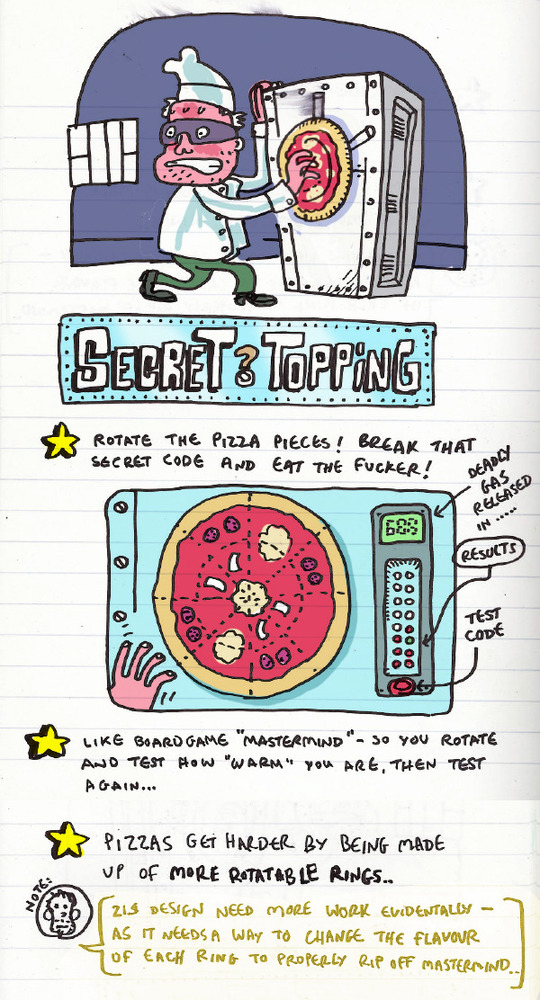 SECRET ? TOPPING
ROTATE THE PIZZA PIECES! BREAK THAT
SECRET CODE AND EAT THE FUCKER!
DEADLY
GAS
RELEASED
IN .....
RESULTS
TEST
CODE
LIKE BOARDGAME "MASTERMIND" - SO YOU ROTATE
AND TEST HOW "WARM" YOU ARE, THEN TEST
AGAIN...
PIZZAS GET HARDER BY BEING MADE
UP OF MORE ROTATABLE RINGS..
NOTE:
ZIS DESIGN NEED MORE WORK EVIDENTALLY -
AS IT NEEDS A WAY TO CHANGE THE FLAVOUR
OF EACH RING TO PROPERLY RIP OFF MASTERMIND..